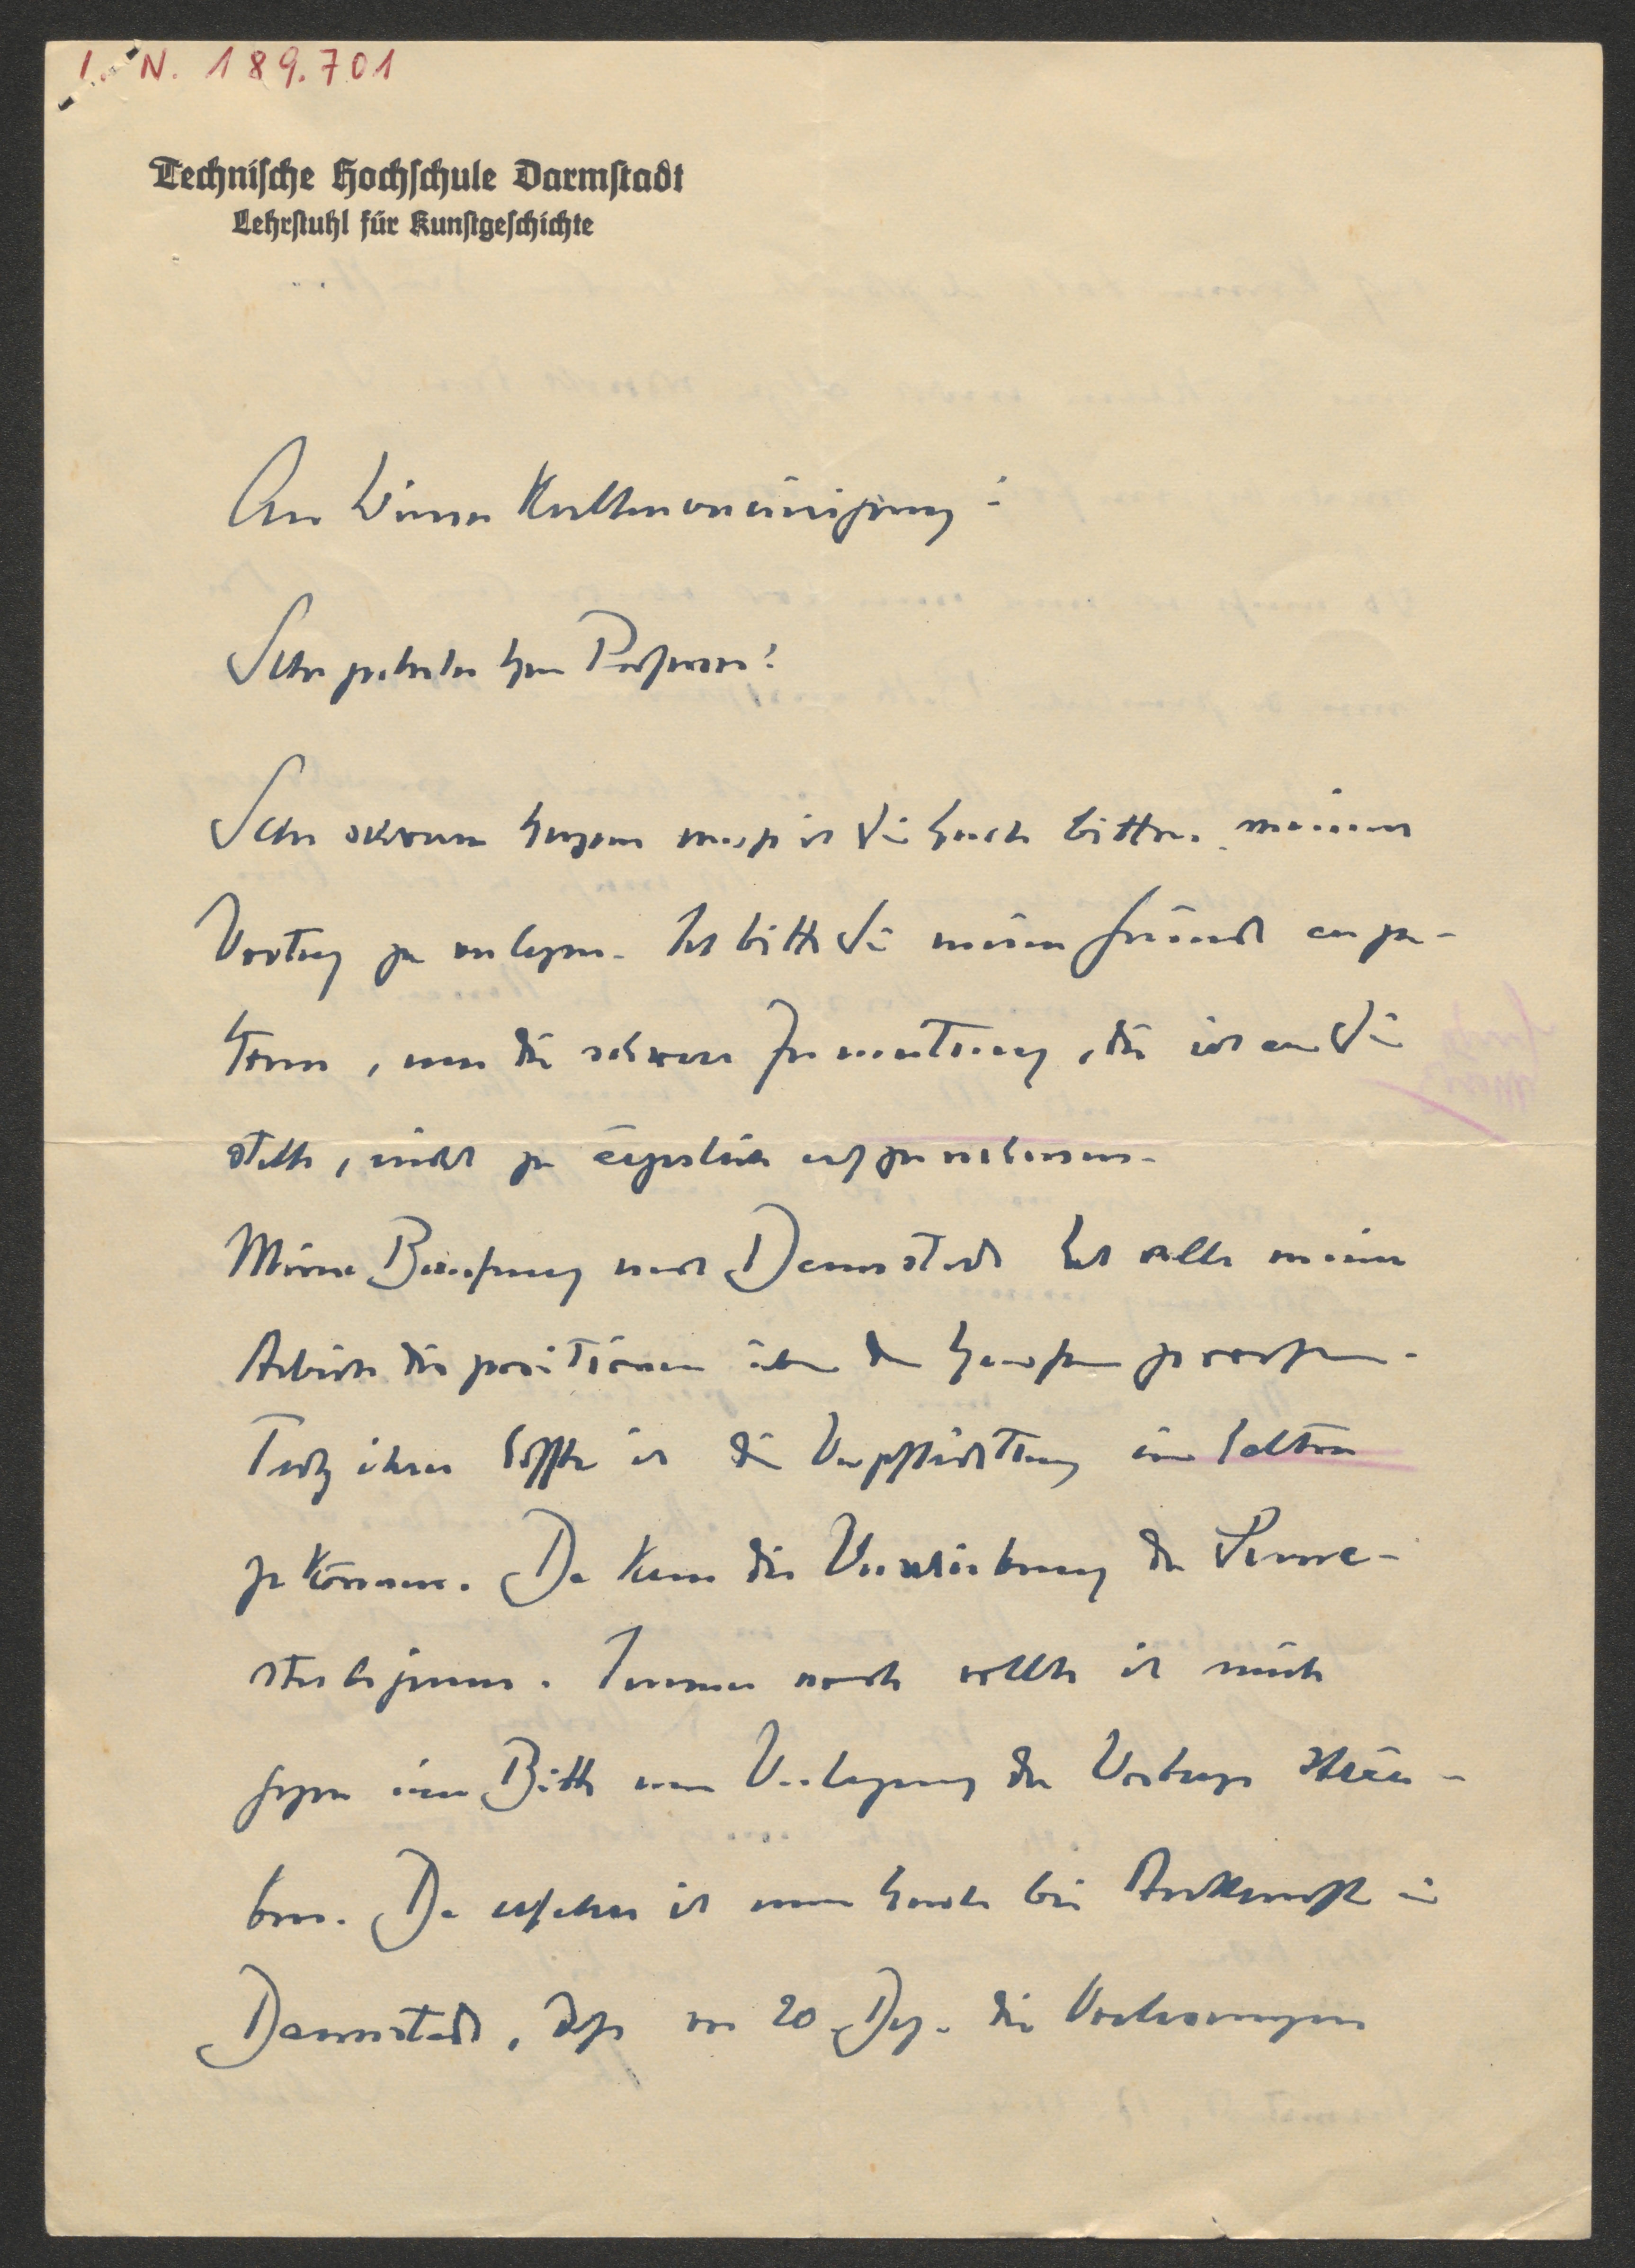 I. N. 189.701
Technische Hochschule Darmstadt
Lehrstuhl für Kunstgeschichte
An Wiener Kulturvereinigung!
Sehr geehrter Herr Professor!
Sehr schweren Herzens muss ich Sie heute bitten, meinen
Vortrag zu verlegen. Ich bitte Sie meine Gründe anzu-
hören, um die schwere Zumutung, die ich an Sie
stelle, nicht zu ärgerlich aufzunehmen.
Meine Berufung nach Darmstadt hat alle meine
Arbeitsdispositionen über den Haufen geworfen.
Trotz ihrer hoffte ich die Verpflichtung einhalten
zu können. Da kam die Verschiebung der Seme-
sterbeginne. Immer noch wollte ich mich
gegen eine Bitte um Verlegung des Vortrags sträu-
ben. Da erfahre ich nun heute bei Ankunft in
Darmstadt, dass am 20. Dez. die Vorlesungen